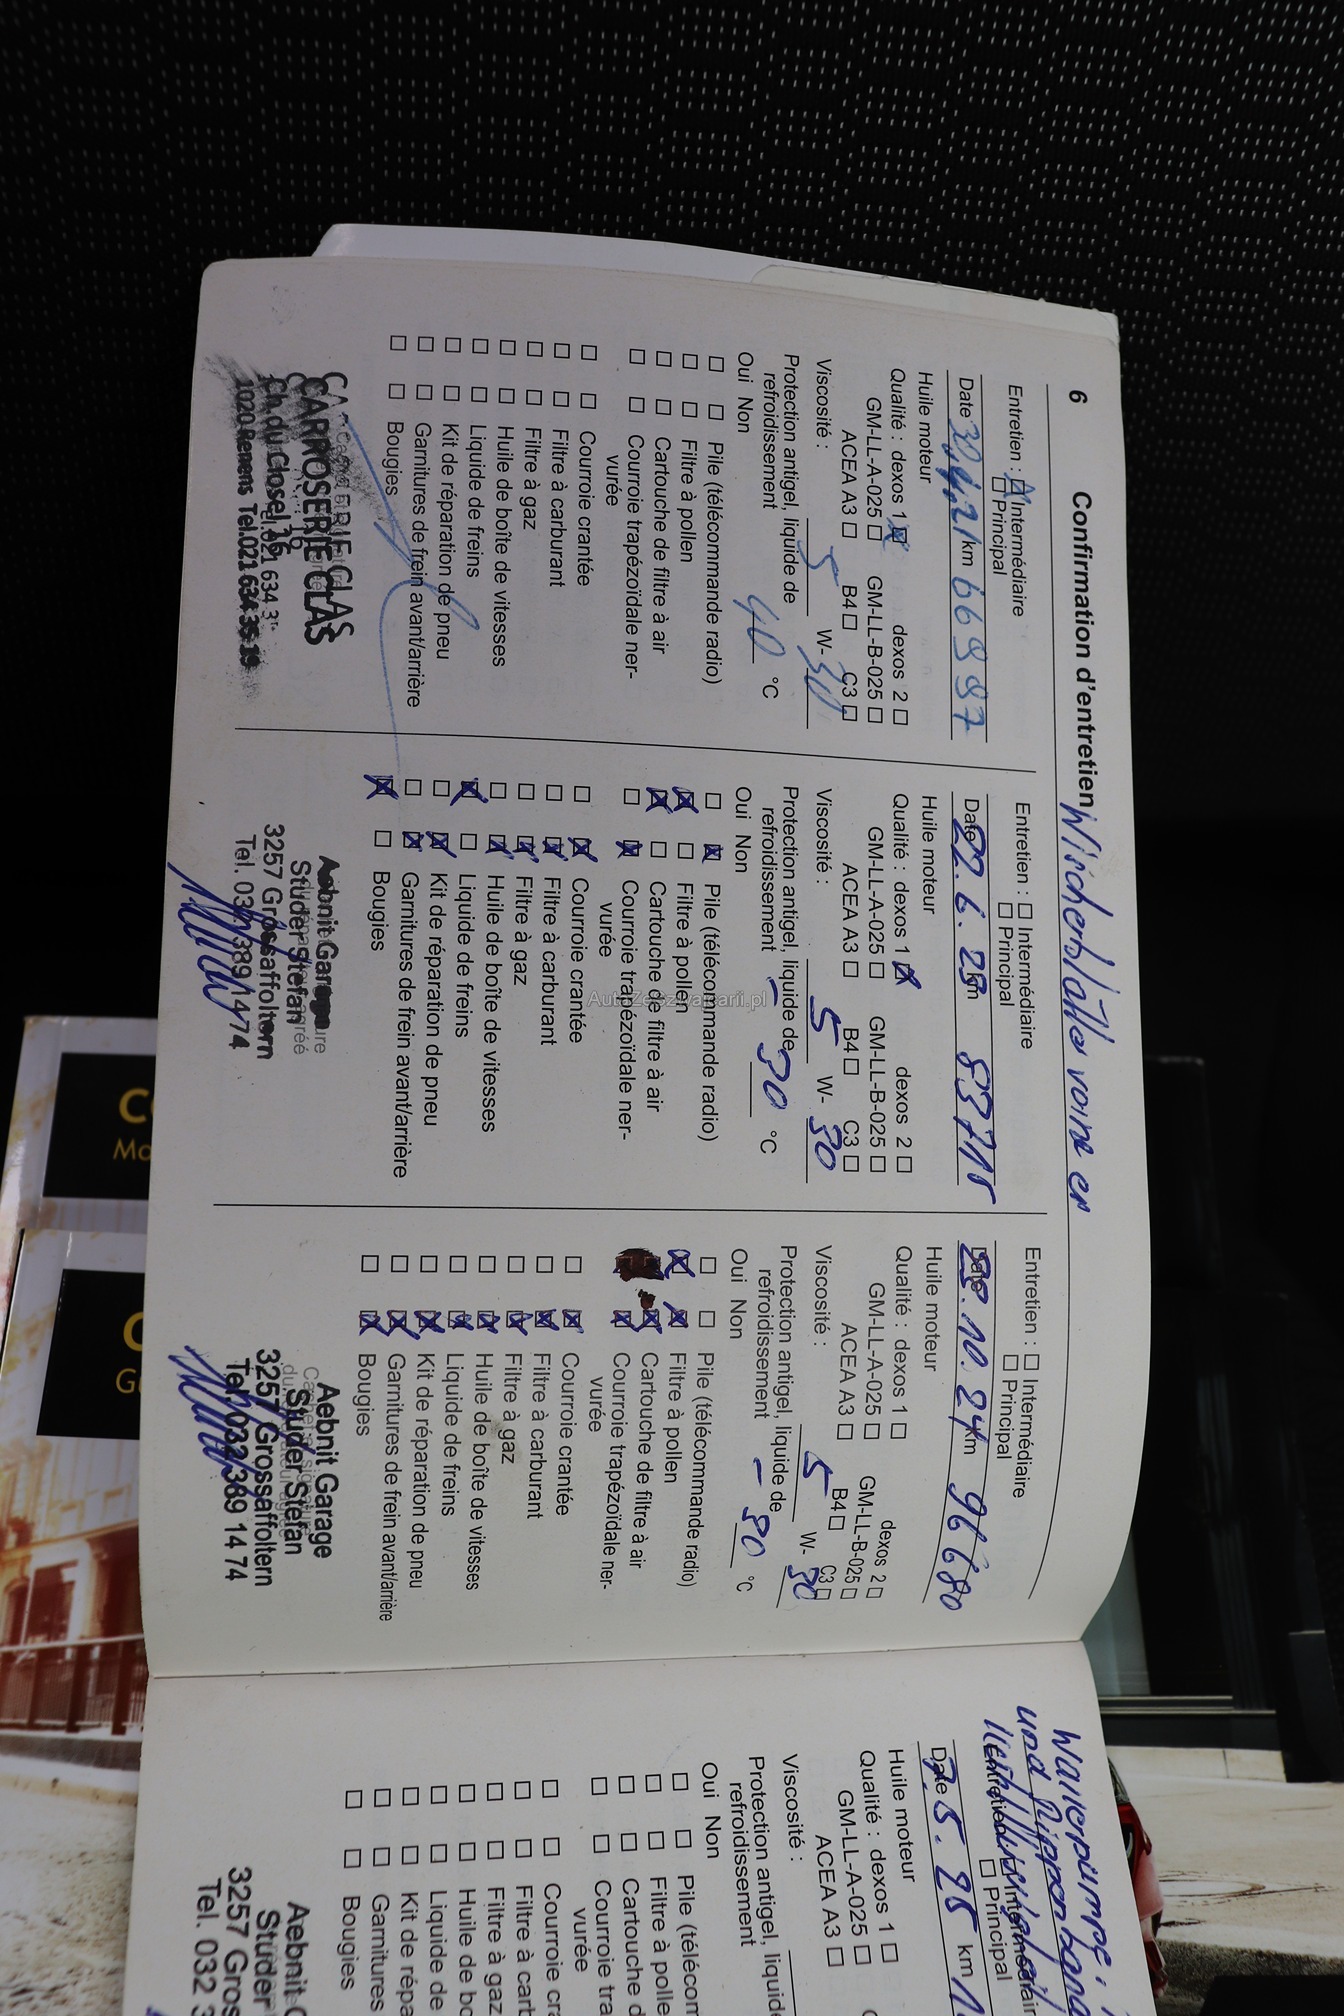 6 Confirmation d'entretien
Entretien : Intermédiaire
Principal
Date 30.4.21 km 66997
Huile moteur
Qualité : dexos 1 dexos 2
GM-LL-A-025 GM-LL-B-025
ACEA A3 B4 C3
Viscosité : 5 W- 30
Protection antigel, liquide de
refroidissement 40 °C
Oui Non
Pile (télécommande radio)
Filtre à pollen
Cartouche de filtre à air
Courroie trapézoïdale ner-
vurée
Courroie crantée
Filtre à carburant
Filtre à gaz
Huile de boîte de vitesses
Liquide de freins
Kit de réparation de pneu
Garnitures de frein avant/arrière
Bougies
CARROSSERIE CLAS
Ch. du Closel 16
1020 Renens Tel.021 634 35 19
Entretien : Intermédiaire
Principal
Date 22.6.23 km 83715
Huile moteur
Qualité : dexos 1 dexos 2
GM-LL-A-025 GM-LL-B-025
ACEA A3 B4 C3
Viscosité : 5 W- 30
Protection antigel, liquide de
refroidissement - 30 °C
Oui Non
Pile (télécommande radio)
Filtre à pollen
Cartouche de filtre à air
Courroie trapézoïdale ner-
vurée
Courroie crantée
Filtre à carburant
Filtre à gaz
Huile de boîte de vitesses
Liquide de freins
Kit de réparation de pneu
Garnitures de frein avant/arrière
Bougies
Aebnit Garage
Studer Stefan
3257 Grossaffoltern
Tel. 032 389 14 74
AutoZeSzwajcarii.pl
Entretien : Intermédiaire
Principal
Date 25.10.24 km 96680
Huile moteur
Qualité : dexos 1 dexos 2
GM-LL-A-025 GM-LL-B-025
ACEA A3 B4 C3
Viscosité : 5 W- 30
Protection antigel, liquide de
refroidissement - 30 °C
Oui Non
Pile (télécommande radio)
Filtre à pollen
Cartouche de filtre à air
Courroie trapézoïdale ner-
vurée
Courroie crantée
Filtre à carburant
Filtre à gaz
Huile de boîte de vitesses
Liquide de freins
Kit de réparation de pneu
Garnitures de frein avant/arrière
Bougies
Aebnit Garage
Studer Stefan
3257 Grossaffoltern
Tel. 032 389 14 74
Wasserpumpe,
und Rippen
Entretien : Intermédiaire
Principal
Date 7.5.25 km
Huile moteur
Qualité : dexos 1
GM-LL-A-025
ACEA A3
Viscosité :
Protection antigel,
refroidissement
Oui Non
Pile
Filtre à
Cartouche
Courroie
vurée
Courroie
Filtre à
Filtre à gaz
Huile de
Liquide de
Kit de
Garnitures
Bougies
Aebnit
Studer
3257
Tel. 032